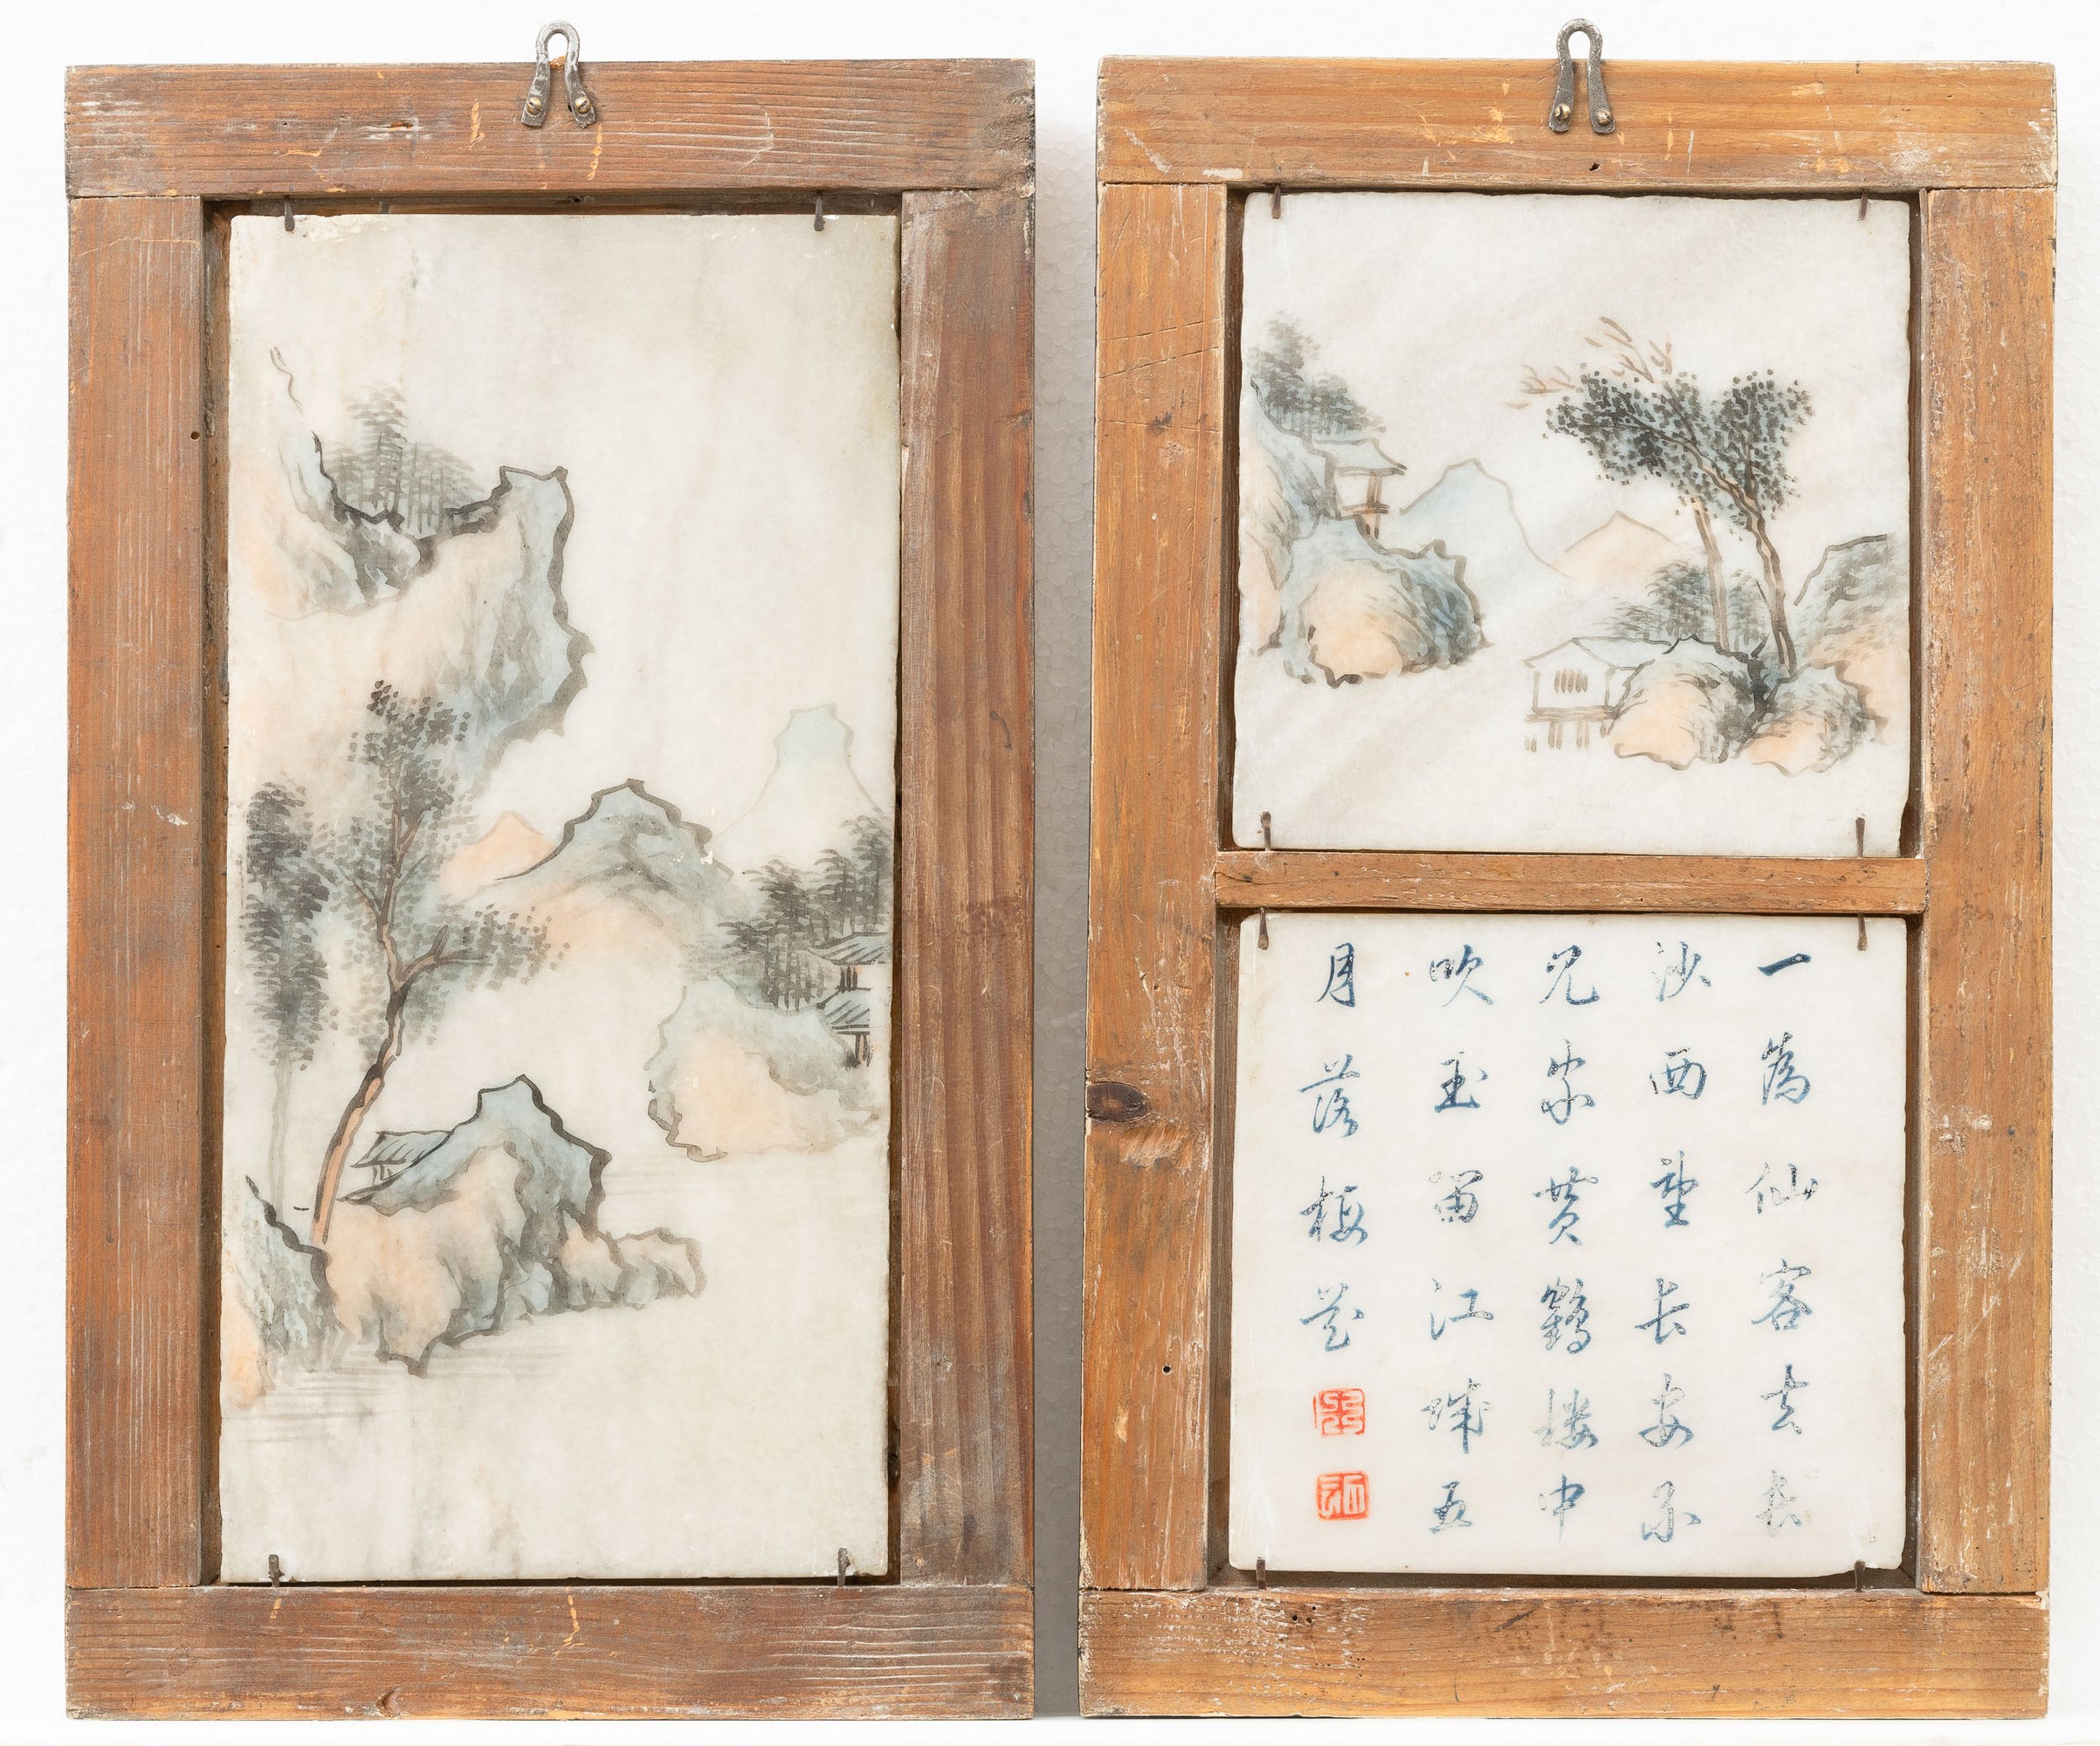 一為仙客去長
沙西望長安不
見家黄鶴楼中
吹玉笛江城五
月落梅花